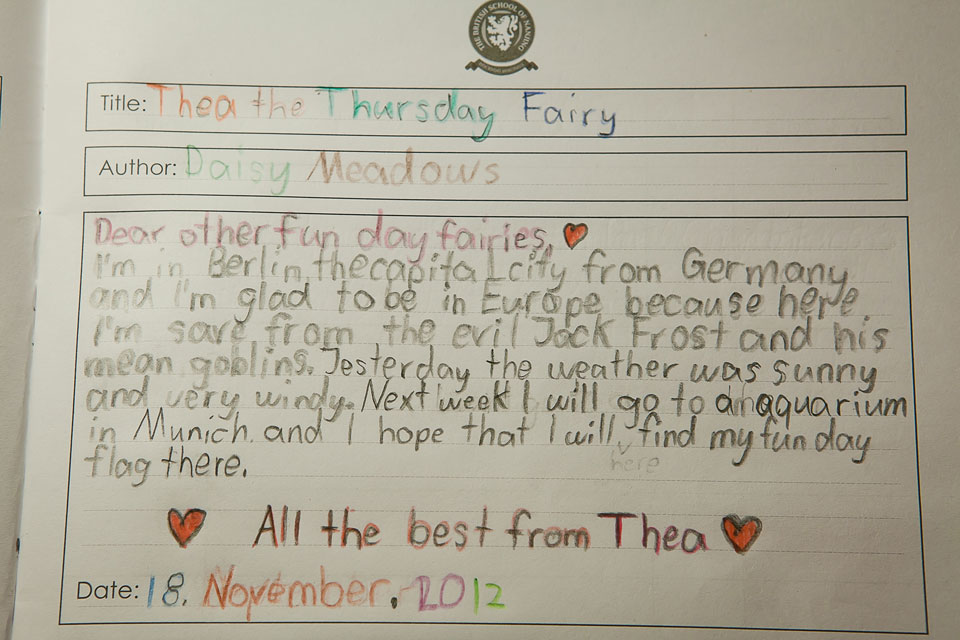 THE BRITISH SCHOOL OF NANJING
Title: Thea the Thursday Fairy
Author: Daisy Meadows
Dear other fun day fairies,
I'm in Berlin, the capital city from Germany
and I'm glad to be in Europe because here
I'm save from the evil Jack Frost and his
mean goblins. Jesterday the weather was sunny
and very windy. Next week I will go to an aquarium
in Munich and I hope that I will find my fun day
here
flag there.
All the best from Thea
Date: 18. November. 2012